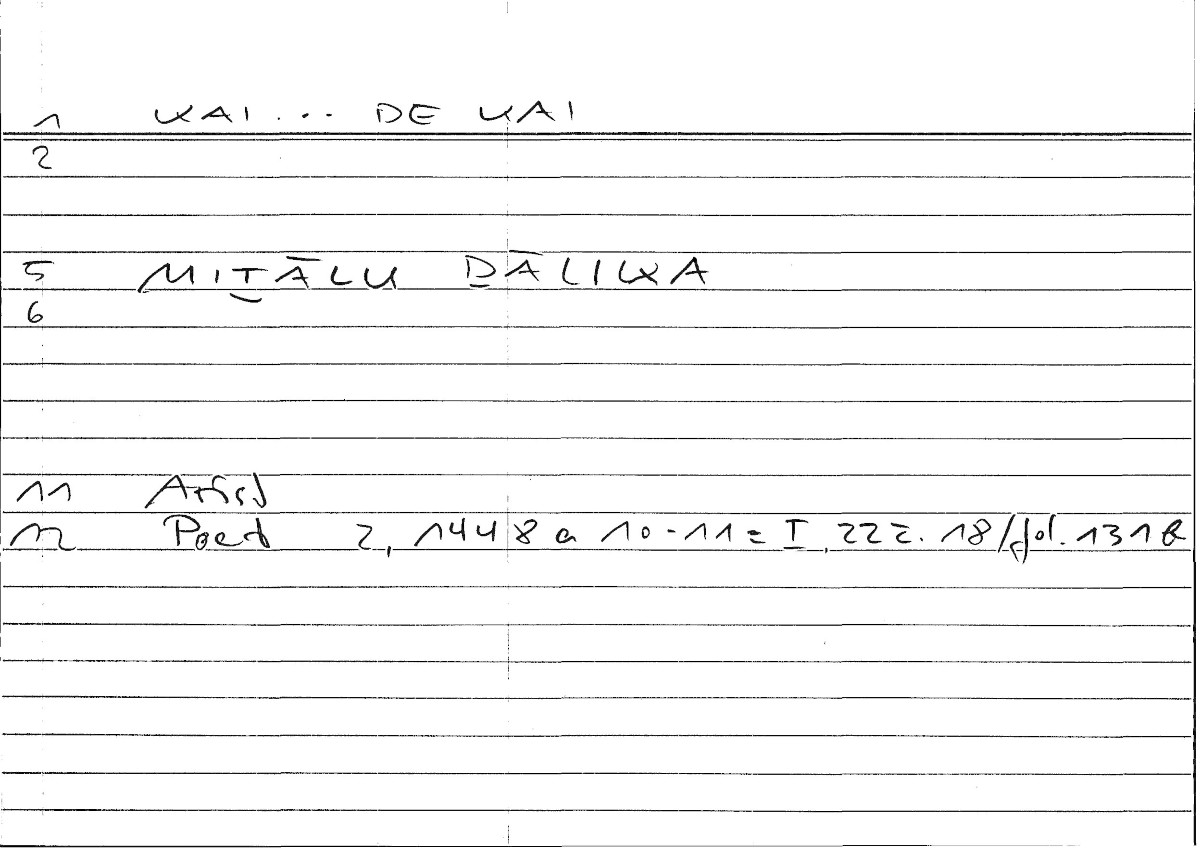 1 KAI ... DE KAI
2
5 MIṮĀLU ḎĀLIKA
6
11 Arist
12 Poet 2, 1448 a 10-11 = I, 222. 18/fol. 131b